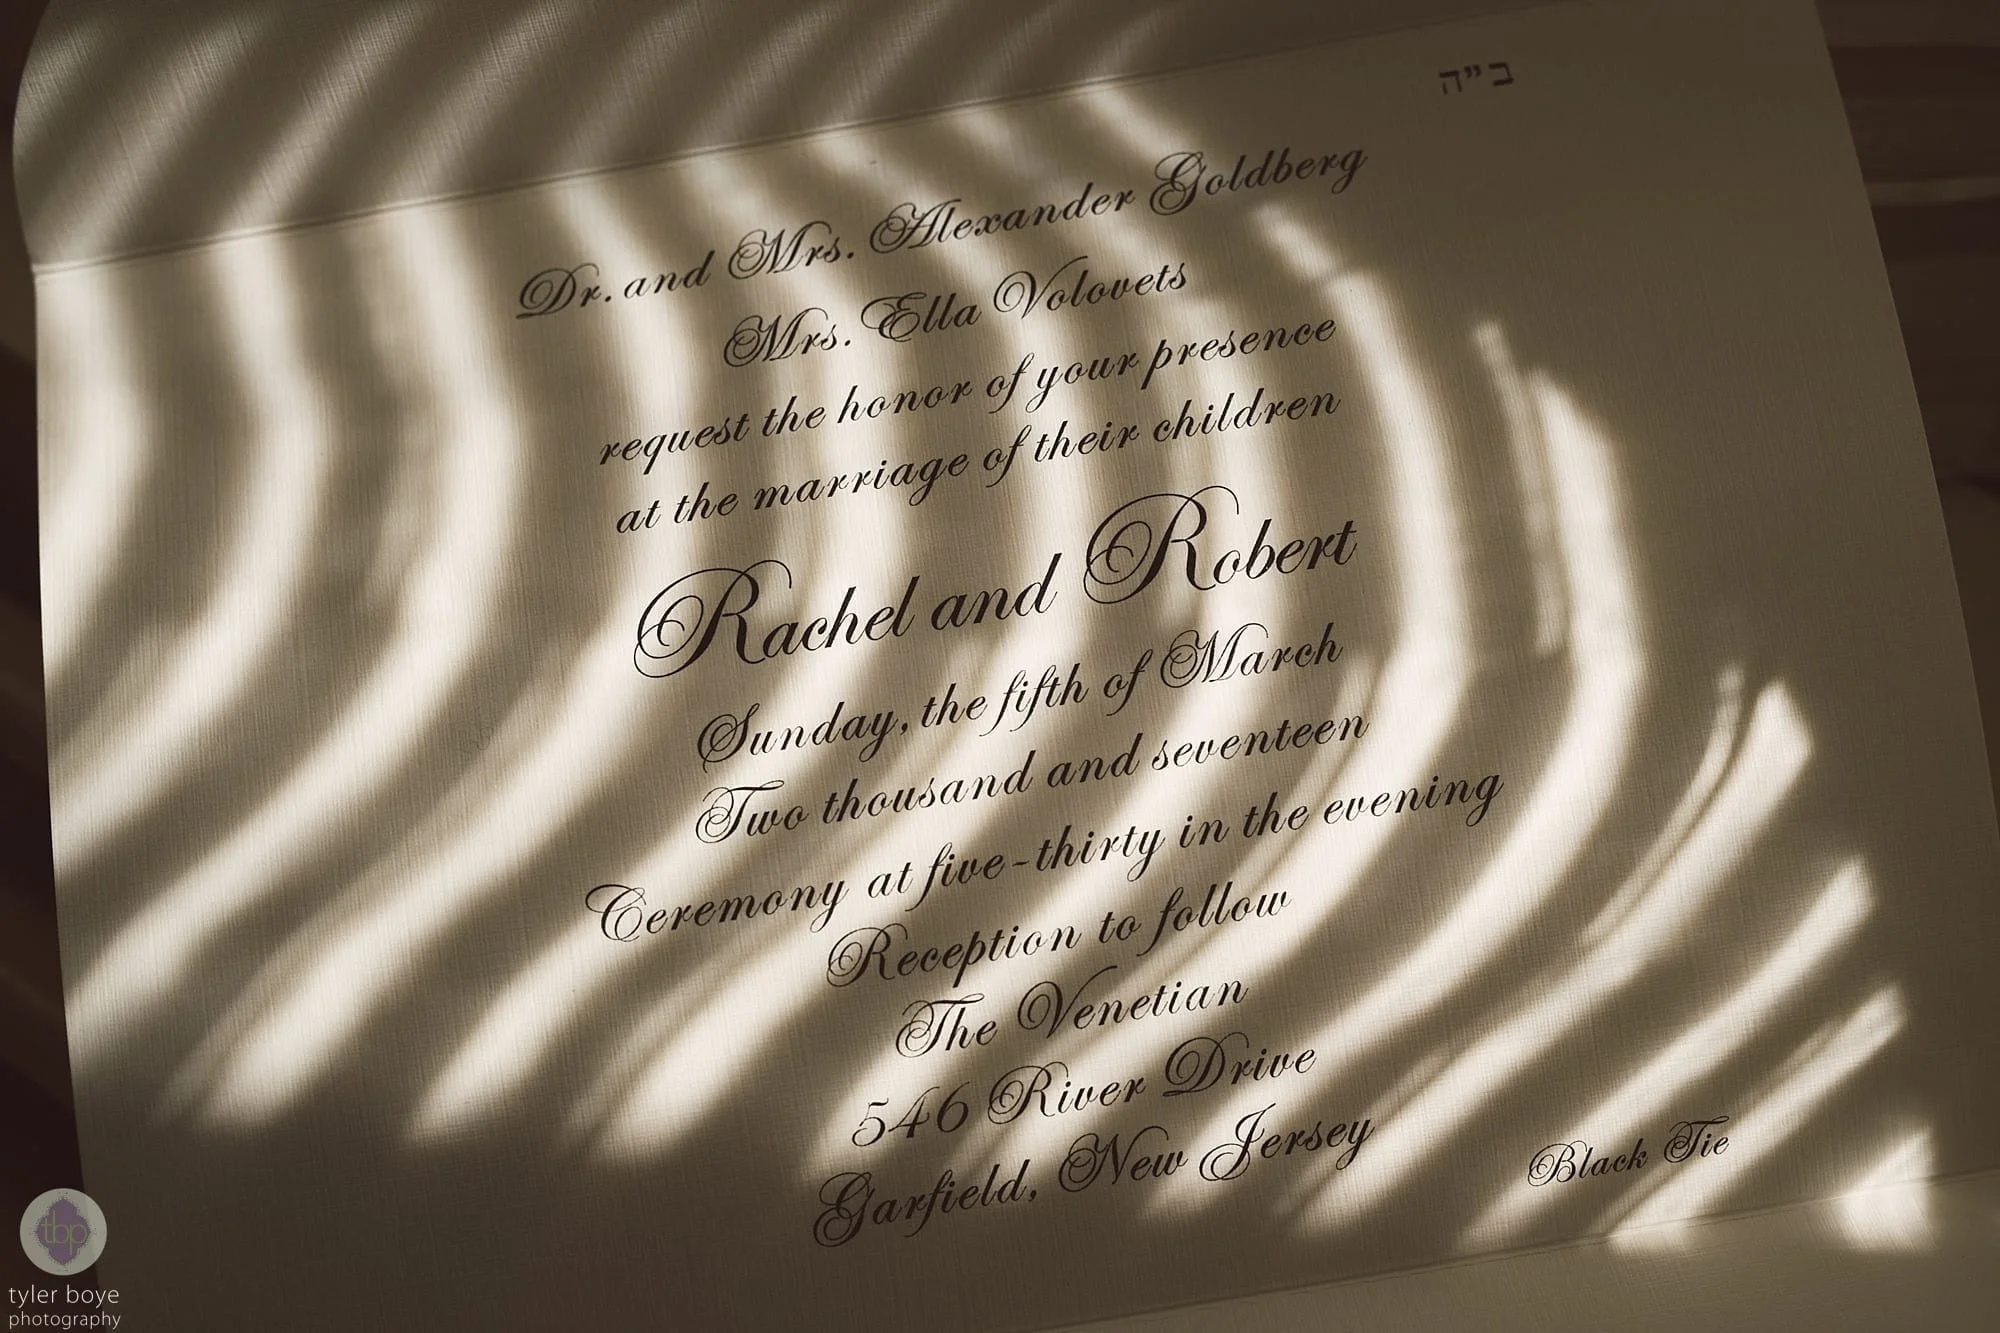 ב״ה
Dr. and Mrs. Alexander Goldberg
Mrs. Ella Volovets
request the honor of your presence
at the marriage of their children
Rachel and Robert
Sunday, the fifth of March
Two thousand and seventeen
Ceremony at five-thirty in the evening
Reception to follow
The Venetian
546 River Drive
Garfield, New Jersey
Black Tie
tbp
tyler boye
photography